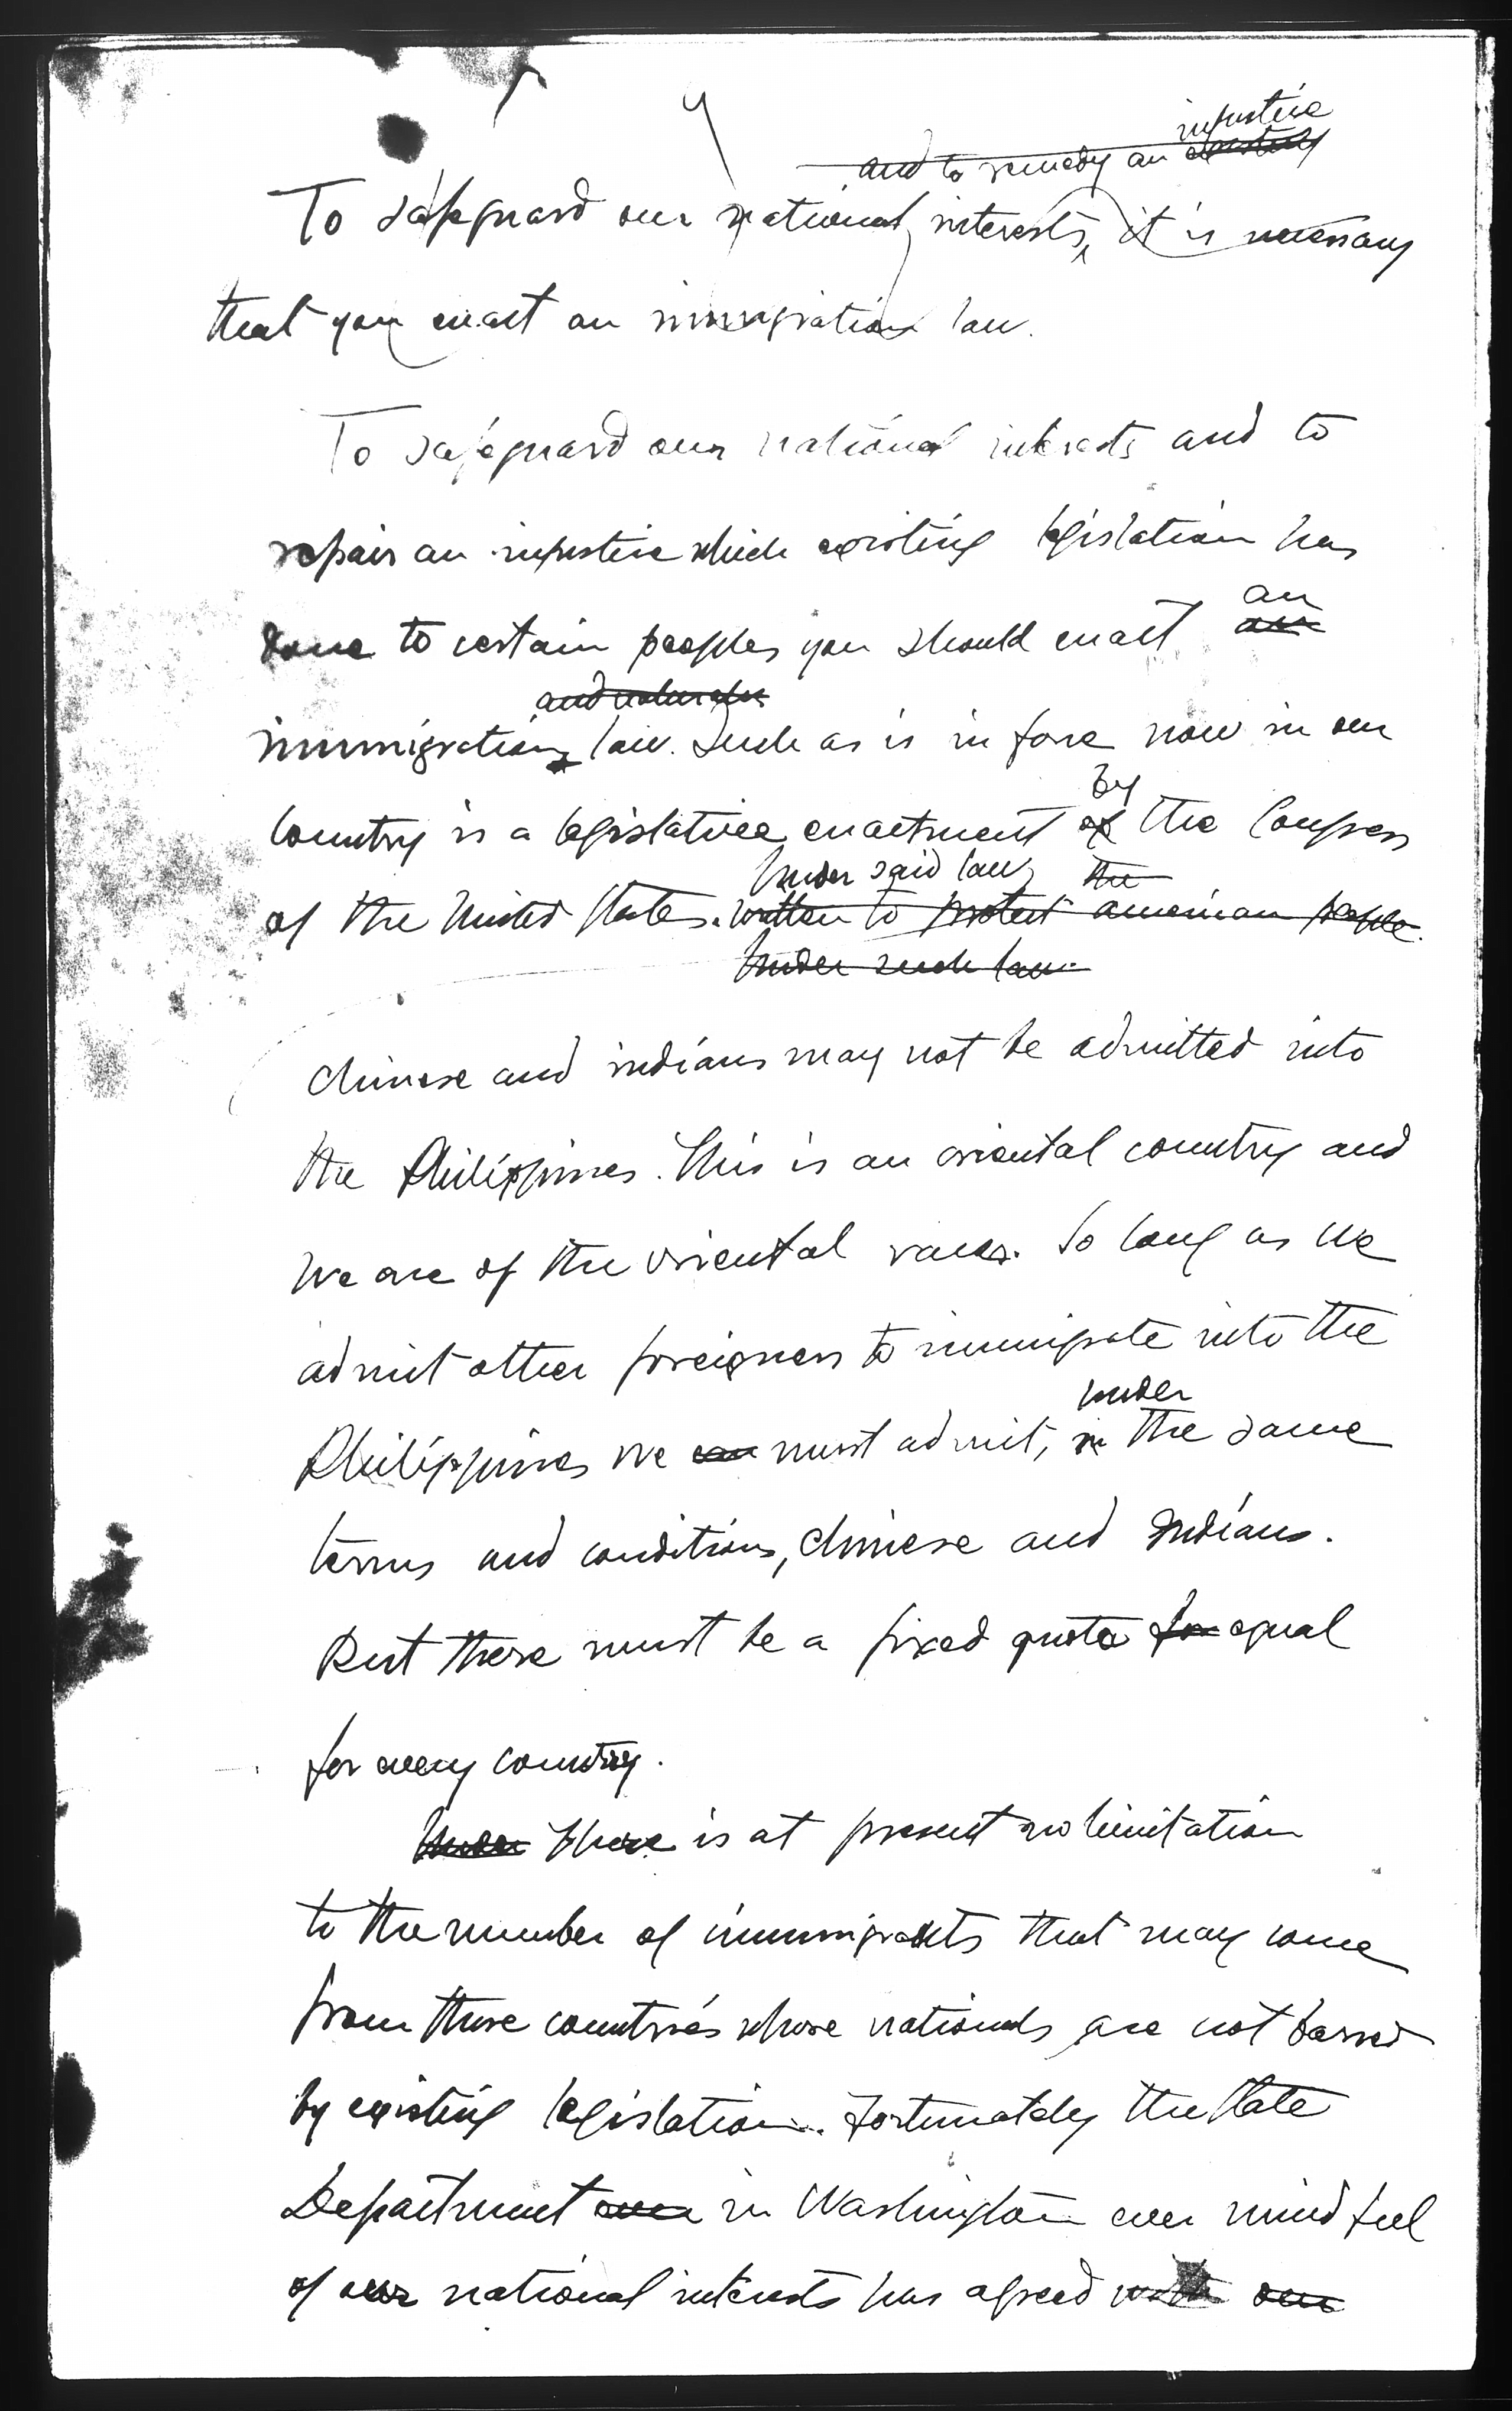 injustice
and to remedy an existing
To safeguard our national interests, it is necessary
that you enact an immigration law.
To safeguard our national interests and to
repair an injustice which existing legislation has
done to certain peoples you should enact an
an
and
immigration law. Such as is in force now in our
by
country is a legislative enactment of the Congress
Under said law, the
of the United States. written to protect american people.
Under such law
chinese and indians may not be admitted into
the Philippines. This is an oriental country and
we are of the oriental races. So long as we
admit other foreigners to immigrate into the
under
Philippines we can must admit, in the same
terms and conditions, chinese and Indians.
But there must be a fixed quota for equal
for every country.
Under There is at present no limitation
to the number of immigrants that may come
from those countries whose nationals are not barred
by existing legislation. Fortunately the State
Department ever in Washington ever mindful
of our national interests has agreed with our